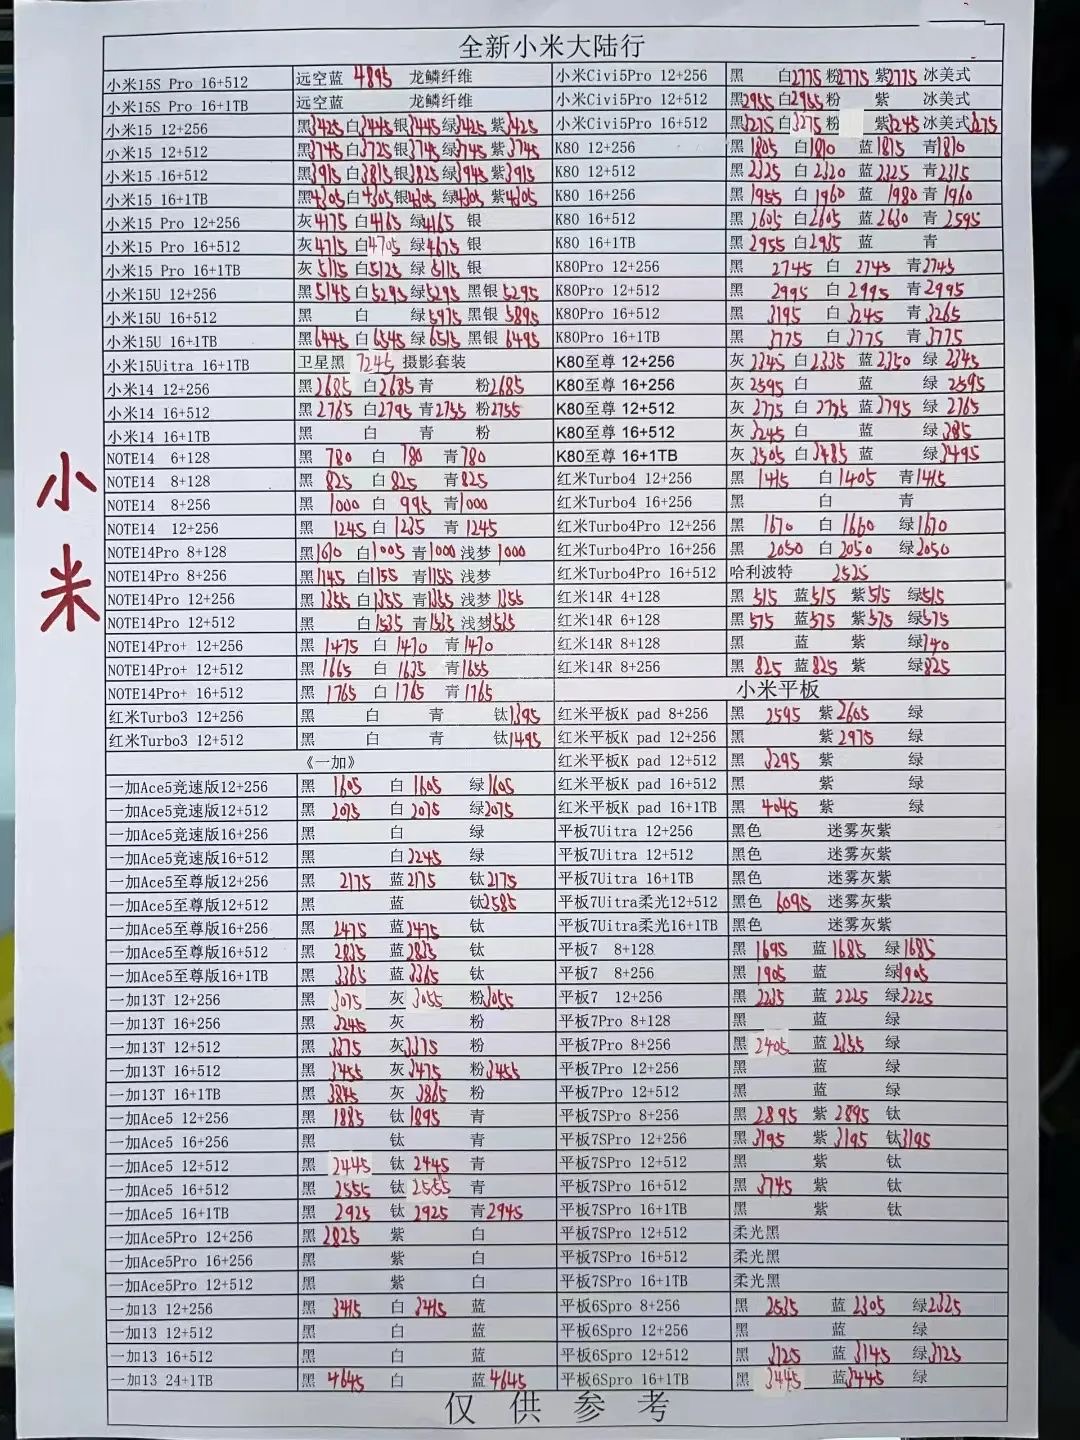 全新小米大陆行
小米15S Pro 16+512 远空蓝 4895 龙鳞纤维
小米15S Pro 16+1TB 远空蓝 龙鳞纤维
小米15 12+256 黑3425 白3445 银3445 绿3425 紫3425
小米15 12+512 黑3745 白3725 银3745 绿3745 紫3745
小米15 16+512 黑3915 白3815 银3825 绿3945 紫3915
小米15 16+1TB 黑4305 白4305 银4305 绿4305 紫4305
小米15 Pro 12+256 灰4175 白4165 绿4165 银
小米15 Pro 16+512 灰4715 白4705 绿4675 银
小米15 Pro 16+1TB 灰5115 白5125 绿5115 银
小米15U 12+256 黑5145 白5295 绿5295 黑银5295
小米15U 16+512 黑 白 绿5975 黑银5895
小米15U 16+1TB 黑6445 白6545 绿6515 黑银6495
小米15Uitra 16+1TB 卫星黑 7245 摄影套装
小米14 12+256 黑2685 白2685 青 粉2685
小米14 16+512 黑2765 白2795 青2755 粉2755
小米14 16+1TB 黑 白 青 粉
NOTE14 6+128 黑 780 白 780 青780
NOTE14 8+128 黑 825 白 825 青825
NOTE14 8+256 黑 1000 白 995 青1000
NOTE14 12+256 黑 1245 白1235 青 1245
NOTE14Pro 8+128 黑1010 白1005 青1000 浅梦 1000
NOTE14Pro 8+256 黑1145 白1155 青1155 浅梦
NOTE14Pro 12+256 黑1355 白1355 青1355 浅梦 1355
NOTE14Pro 12+512 黑 白1535 青1535 浅梦1535
NOTE14Pro+ 12+256 黑 1475 白 1470 青1470
NOTE14Pro+ 12+512 黑 1665 白 1635 青1655
NOTE14Pro+ 16+512 黑 1765 白 1765 青1765
红米Turbo3 12+256 黑 白 青 钛1395
红米Turbo3 12+512 黑 白 青 钛1495
《一加》
一加Ace5竞速版12+256 黑 1605 白 1605 绿1605
一加Ace5竞速版12+512 黑 2075 白 2075 绿2075
一加Ace5竞速版16+256 黑 白 绿
一加Ace5竞速版16+512 黑 白2245 绿
一加Ace5至尊版12+256 黑 2175 蓝2175 钛2175
一加Ace5至尊版12+512 黑 蓝 钛2585
一加Ace5至尊版16+256 黑 2475 蓝2475 钛
一加Ace5至尊版16+512 黑 2835 蓝2835 钛
一加Ace5至尊版16+1TB 黑 3365 蓝3365 钛
一加13T 12+256 黑 3075 灰 3055 粉3055
一加13T 16+256 黑 3245 灰 粉
一加13T 12+512 黑 3375 灰3375 粉
一加13T 16+512 黑 3455 灰3475 粉3455
一加13T 16+1TB 黑 3845 灰 3865 粉
一加Ace5 12+256 黑 1885 钛1895 青
一加Ace5 16+256 黑 钛 青
一加Ace5 12+512 黑 2445 钛 2445 青
一加Ace5 16+512 黑 2555 钛 2555 青
一加Ace5 16+1TB 黑 2925 钛 2925 青2945
一加Ace5Pro 12+256 黑 2825 紫 白
一加Ace5Pro 16+256 黑 紫 白
一加Ace5Pro 12+512 黑 紫 白
一加13 12+256 黑 3415 白 3415 蓝
一加13 12+512 黑 白 蓝
一加13 16+512 黑 白 蓝
一加13 24+1TB 黑 4645 白 蓝4645
小米Civi5Pro 12+256 黑 白2775 粉2775 紫2775 冰美式
小米Civi5Pro 12+512 黑2955 白2955 粉 紫 冰美式
小米Civi5Pro 16+512 黑3275 白3275 粉 紫3245 冰美式3275
K80 12+256 黑 1805 白1810 蓝1815 青1810
K80 12+512 黑 2325 白 2320 蓝2325 青2315
K80 16+256 黑 1955 白 1960 蓝 1980 青1960
K80 16+512 黑 2605 白2605 蓝2630 青 2595
K80 16+1TB 黑 2955 白2935 蓝 青
K80Pro 12+256 黑 2745 白 2745 青2745
K80Pro 12+512 黑 2995 白 2995 青2995
K80Pro 16+512 黑 3195 白 3245 青 3265
K80Pro 16+1TB 黑 3775 白 3775 青 3775
K80至尊 12+256 灰 2345 白2335 蓝2350 绿 2345
K80至尊 16+256 灰2595 白 蓝 绿 2595
K80至尊 12+512 灰 2775 白 2775 蓝2795 绿 2765
K80至尊 16+512 灰3245 白 蓝 绿
K80至尊 16+1TB 灰3505 白3485 蓝 绿3495
红米Turbo4 12+256 黑 1415 白1405 青1415
红米Turbo4 16+256 黑 白 青
红米Turbo4Pro 12+256 黑 1670 白 1660 绿1670
红米Turbo4Pro 16+256 黑 2050 白 2050 绿2050
红米Turbo4Pro 16+512 哈利波特 2525
红米14R 4+128 黑 515 蓝515 紫515 绿515
红米14R 6+128 黑575 蓝575 紫575 绿575
红米14R 8+128 黑 蓝 紫 绿740
红米14R 8+256 黑 825 蓝825 紫 绿825
小米平板
红米平板K pad 8+256 黑 2595 紫2605 绿
红米平板K pad 12+256 黑 紫2975 绿
红米平板K pad 12+512 黑 3295 紫 绿
红米平板K pad 16+512 黑 紫 绿
红米平板K pad 16+1TB 黑 4045 紫 绿
平板7Uitra 12+256 黑色 迷雾灰紫
平板7Uitra 12+512 黑色 迷雾灰紫
平板7Uitra 16+1TB 黑色 迷雾灰紫
平板7Uitra柔光12+512 黑色 6095 迷雾灰紫
平板7Uitra柔光16+1TB 黑色 迷雾灰紫
平板7 8+128 黑 1695 蓝1685 绿1685
平板7 8+256 黑 1905 蓝 绿1905
平板7 12+256 黑 2235 蓝 2225 绿2225
平板7Pro 8+128 黑 蓝 绿
平板7Pro 8+256 黑 2405 蓝 2355 绿
平板7Pro 12+256 黑 蓝 绿
平板7Pro 12+512 黑 蓝 绿
平板7SPro 8+256 黑 2895 紫 2895 钛
平板7SPro 12+256 黑 3195 紫 3195 钛3195
平板7SPro 12+512 黑 紫 钛
平板7SPro 16+512 黑 3745 紫 钛
平板7SPro 16+1TB 黑 紫 钛
平板7SPro 12+512 柔光黑
平板7SPro 16+512 柔光黑
平板7SPro 16+1TB 柔光黑
平板6Spro 8+256 黑 2535 蓝 2305 绿2325
平板6Spro 12+256 黑 蓝 绿
平板6Spro 12+512 黑 3125 蓝 3145 绿3125
平板6Spro 16+1TB 黑 3445 蓝3445 绿
仅供参考
小米